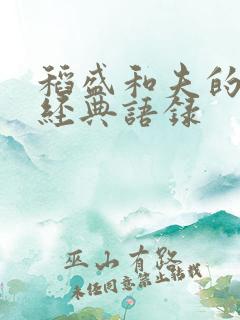 稻盛和夫的
經典語録
巫山有路
未經同意禁止轉載